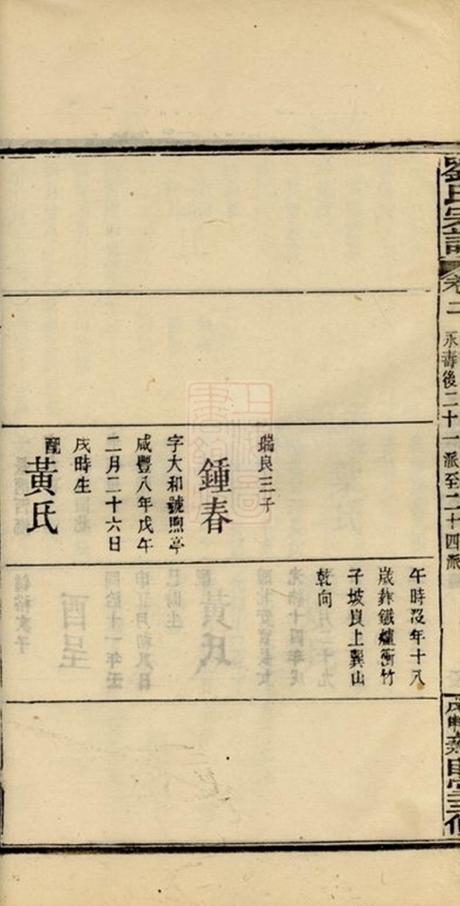 劉氏宗譜
卷二
永壽後二十一派至二十四派
瑞良三子
鍾春
字大和號煦亭
咸豐八年戊午
二月二十六日
戌時生
配
黃氏
午時沒年十八
歲葬鐵爐衝竹
子坡艮上巽山
乾向